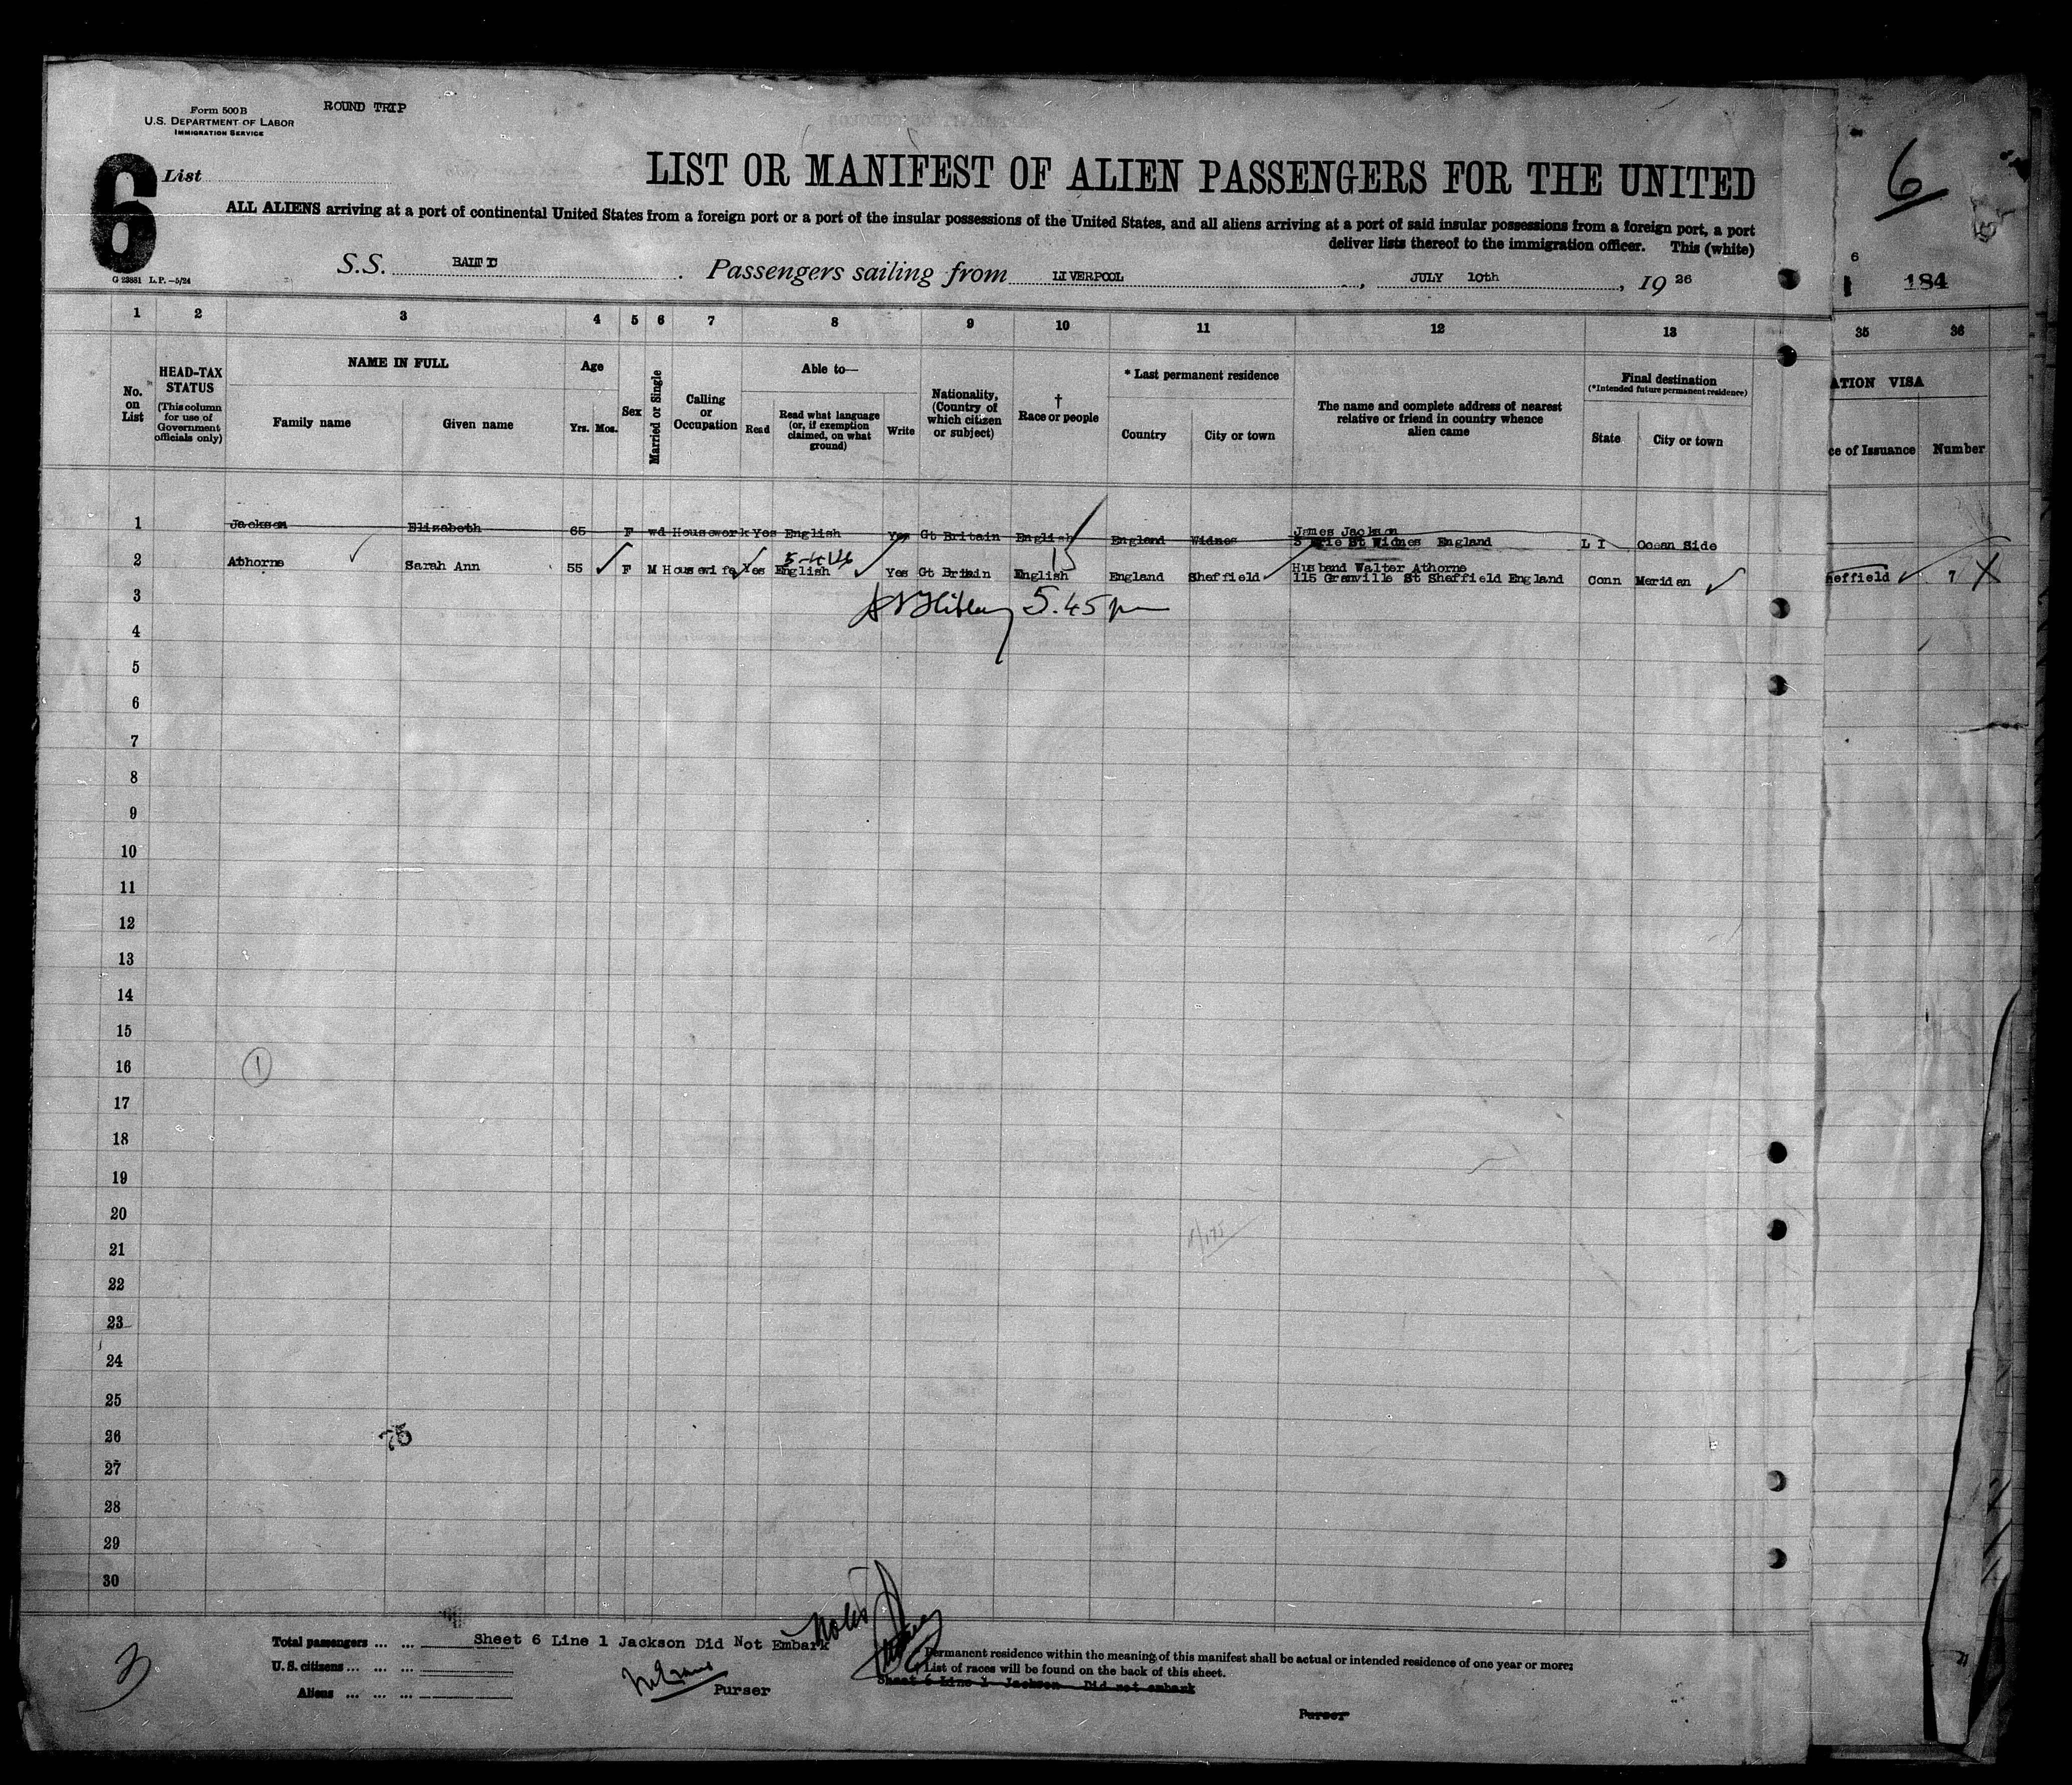 Form 500 B
U.S. DEPARTMENT OF LABOR
IMMIGRATION SERVICE
ROUND TRIP
6
List
LIST OR MANIFEST OF ALIEN PASSENGERS FOR THE UNITED
ALL ALIENS arriving at a port of continental United States from a foreign port or a port of the insular possessions of the United States, and all aliens arriving at a port of said insular possessions from a foreign port, a port
deliver lists thereof to the immigration officer. This (white)
S.S. BALTIC Passengers sailing from LIVERPOOL, JULY 10th, 1926
G 23881 L.P.—5/24
6
6
184
1 2 3 4 5 6 7 8 9 10 11 12 13 35 36
No. on List
HEAD-TAX STATUS
(This column for use of Government officials only)
NAME IN FULL
Family name
Given name
Age
Yrs. Mos.
Sex
Married or Single
Calling or Occupation
Able to—
Read
Read what language (or, if exemption claimed, on what ground)
Write
Nationality, (Country of which citizen or subject)
† Race or people
* Last permanent residence
Country
City or town
The name and complete address of nearest relative or friend in country whence alien came
Final destination
(*Intended future permanent residence)
State
City or town
ATION VISA
ce of Issuance
Number
1 Jackson Elizabeth 65 F wd Housework Yes English Yes Gt Britain English England Widnes James Jackson
St Widnes England L I Ocean Side
2 Athorne Sarah Ann 55 F M Housewife Yes English Yes Gt Britain English England Sheffield Husband Walter Athorne
115 Granville St Sheffield England Conn Meriden heffield 7
3
5.45 pm
4
5
6
7
8
9
10
11
12
13
14
15
16
1
17
18
19
20
21
22
23
24
25
26
75
27
28
29
30
3
Total passengers ... ... Sheet 6 Line 1 Jackson Did Not Embark
U. S. citizens ... ... ...
Aliens ... ... ...
Purser
Permanent residence within the meaning of this manifest shall be actual or intended residence of one year or more.
List of races will be found on the back of this sheet.
Sheet 6 Line 1 Jackson Did not embark
Purser